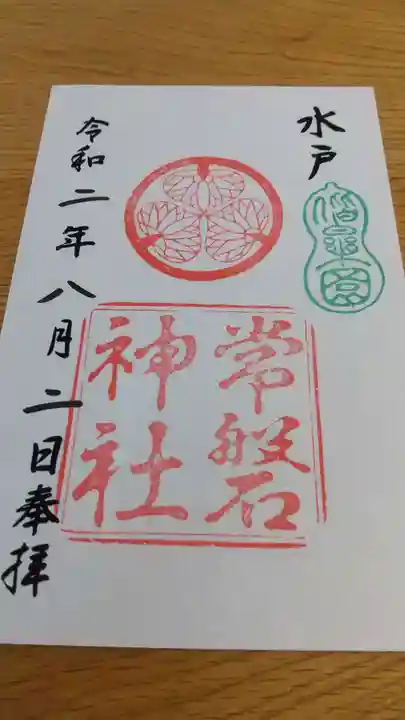 水戸
偕楽園
常磐
神社
令和二年八月二日奉拝